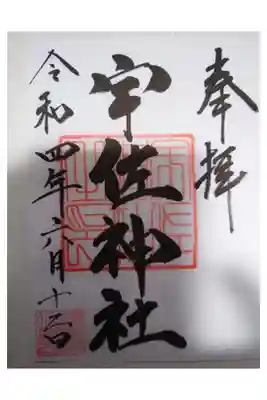 奉拝
宇佐神社
令和四年六月十二日